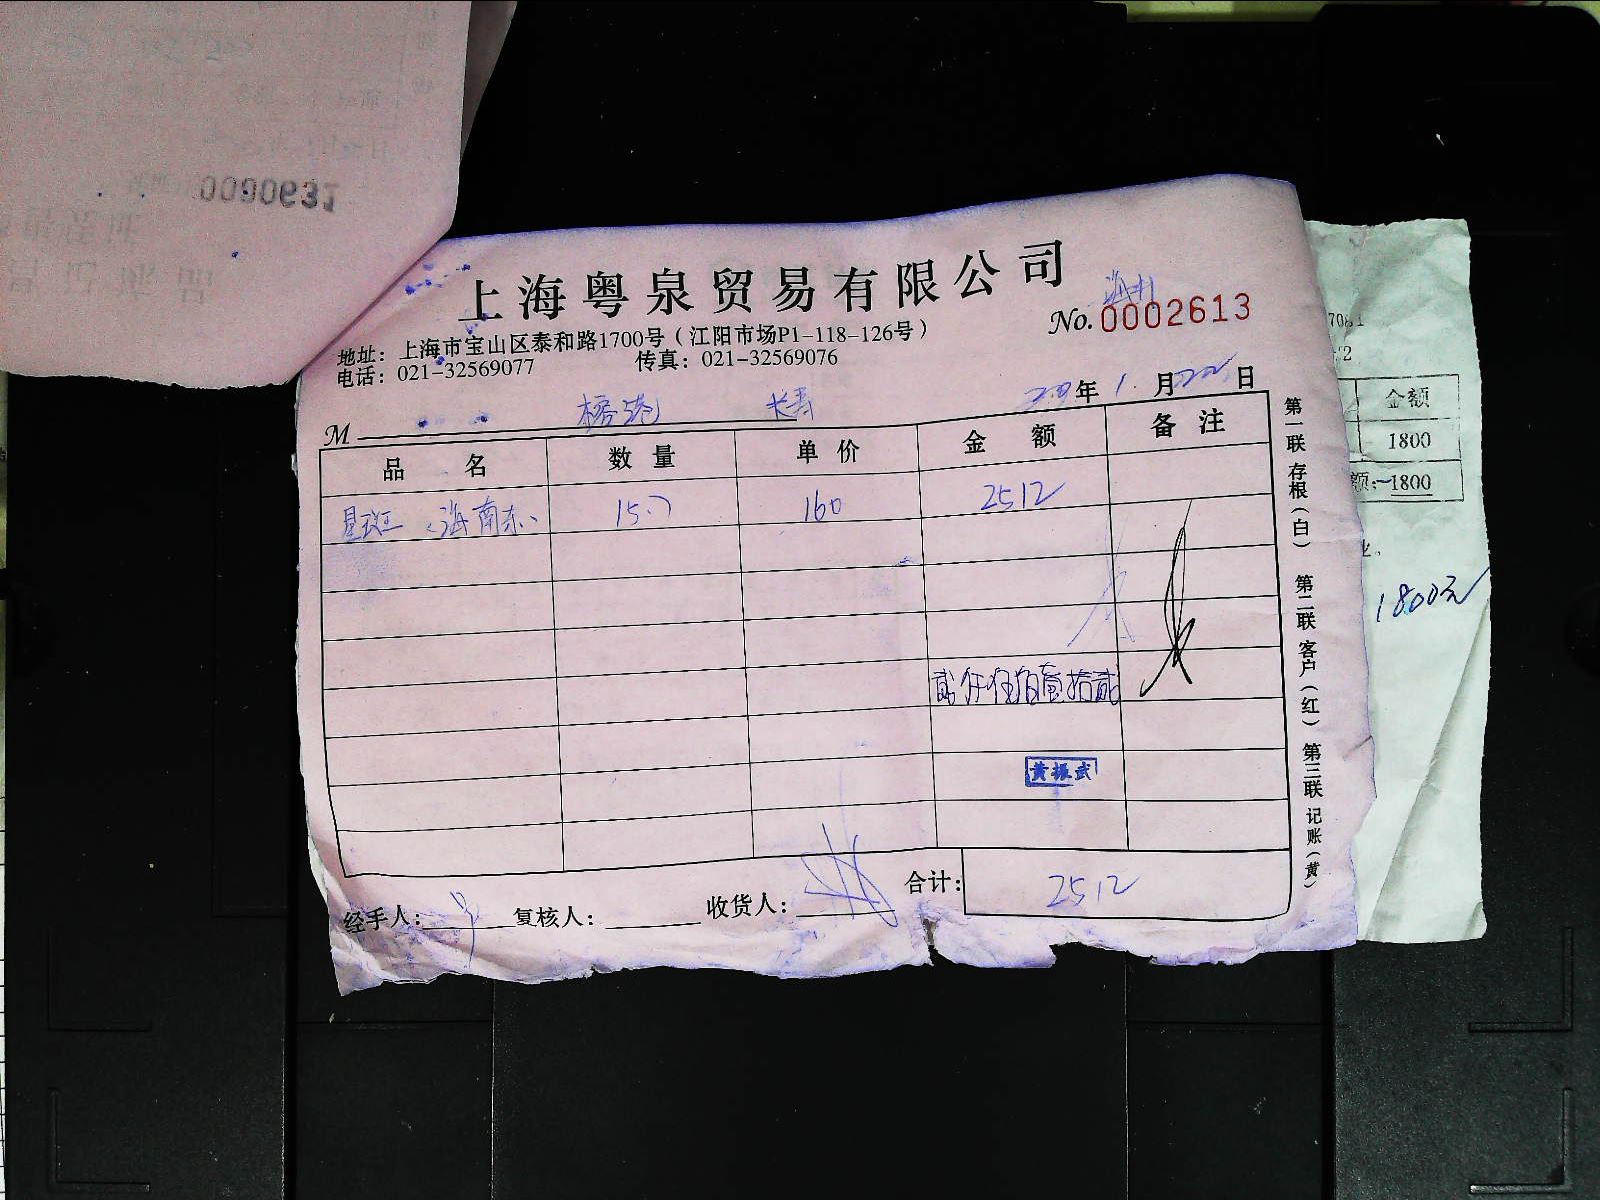 0090631
上海粤泉贸易有限公司
No.0002613
地址：上海市宝山区泰和路1700号（江阳市场P1-118-126号）
电话：021-32569077 传真：021-32569076
年 1 月 22 日
M 榕港 长寿
品 名 数 量 单 价 金 额 备 注
星斑（海南东） 15.7 160 2512
贰仟伍佰壹拾贰
黄振武
合计： 2512
经手人： 复核人： 收货人：
第一联 存根（白） 第二联 客户（红） 第三联 记账（黄）
金额
1800
额:-1800
1800元